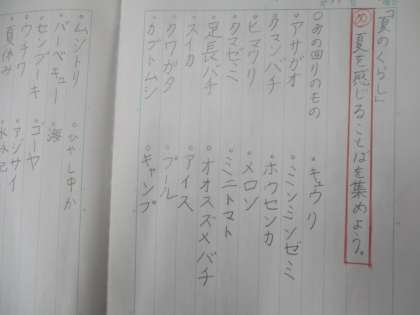 「夏のくらし」
め 夏を感じることばを集めよう。
○身の回りのもの
・キュウリ
・アサガオ
・ミンミンゼミ
・クマンバチ
・ホウセンカ
・ヒマワリ
・メロン
・クマゼミ
・ミニトマト
・足長バチ
・オオスズメバチ
・スイカ
・アイス
・クワガタ
・プール
・カブトムシ
・キャンプ
・ムシトリ
・ひやし中か
・バーベキュー
・海
・ウチワ
・ゴーヤ
・センプーキ
・アジサイ
・夏休み